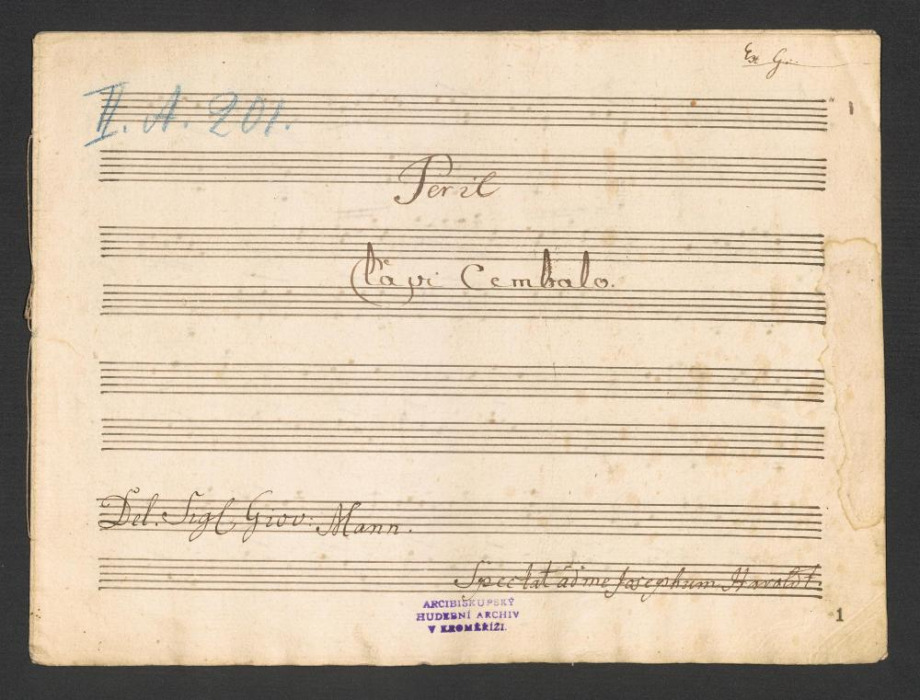 Ex G
II. A. 201.
Per il
Clavi Cembalo.
Del. Sigl Giov: Mann.
Spectat ad me Josephum Haroldt.
ARCIBISKUPSKÝ
HUDEBNÍ ARCHIV
V KROMĚŘÍŽI.
1